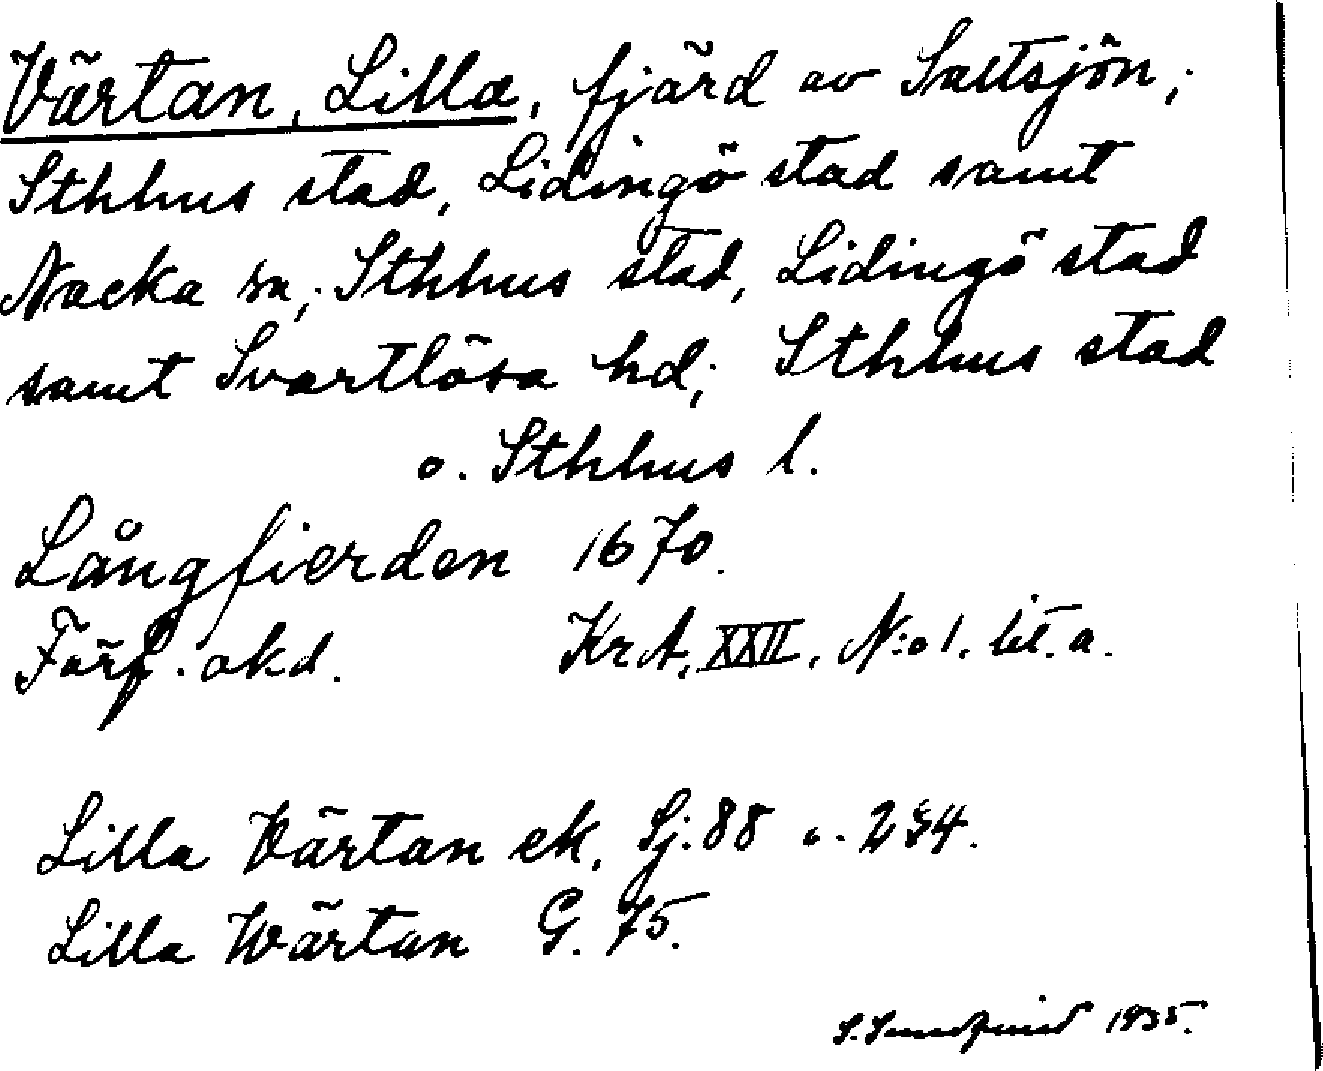 Värtan, Lilla, fjärd av Saltsjön;
Sthlms stad, Lidingö stad samt
Nacka sn; Sthlms stad, Lidingö stad
samt Svartlösa hd; Sthlms stad
o. Sthlms l.
Långfierden 1670.
Förf. okd. KrA, XXII, N:o 1. lit. a.
Lilla Värtan ek, Sj. 88 o. 234.
Lilla Wärtan G. 75.
S. 1935.